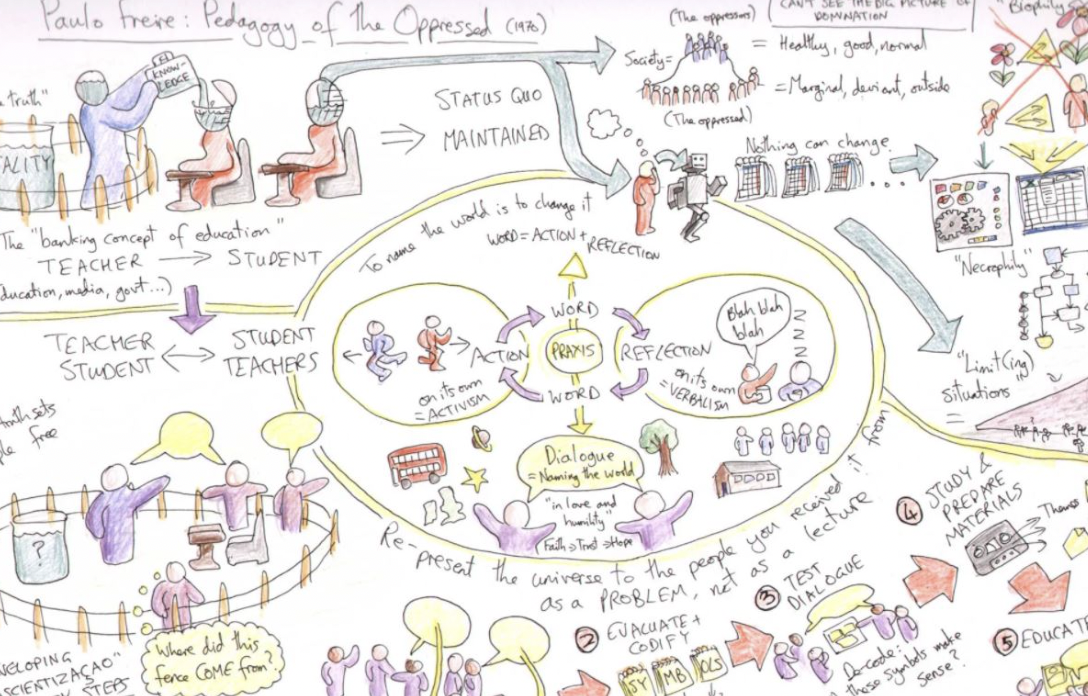 Paulo Freire: Pedagogy of the Oppressed (1970)
truth"
KNOW-
LEDGE
STATUS QUO
MAINTAINED
The "banking concept of education"
TEACHER → STUDENT
education, media, govt...)
TEACHER
STUDENT
STUDENT
TEACHERS
(The oppressors)
Society =
= Healthy, good, normal
= Marginal, deviant, outside
(The oppressed)
CAN'T SEE THE BIG PICTURE OF
DOMINATION
"Biophily
Nothing can change
...
"Necrophily"
"Limit(ing)
situations"
=
To name the world is to change it
WORD = ACTION +
REFLECTION
WORD
ACTION
PRAXIS
REFLECTION
WORD
on its own
= ACTIVISM
on its own
= VERBALISM
Blah blah
blah
Dialogue
= Naming the world
"in love and
humility"
(Faith → Trust → Hope
Re-present the universe to the people you received it from
as a PROBLEM, not as a lecture
truth sets
free
?
Where did this
fence COME from?
STEPS
② EVALUATE +
CODIFY
③ TEST
DIALOGUE
De-code:
those symbols make
sense?
④ STUDY &
PREPARE
MATERIALS
Themes
⑤ EDUCATE